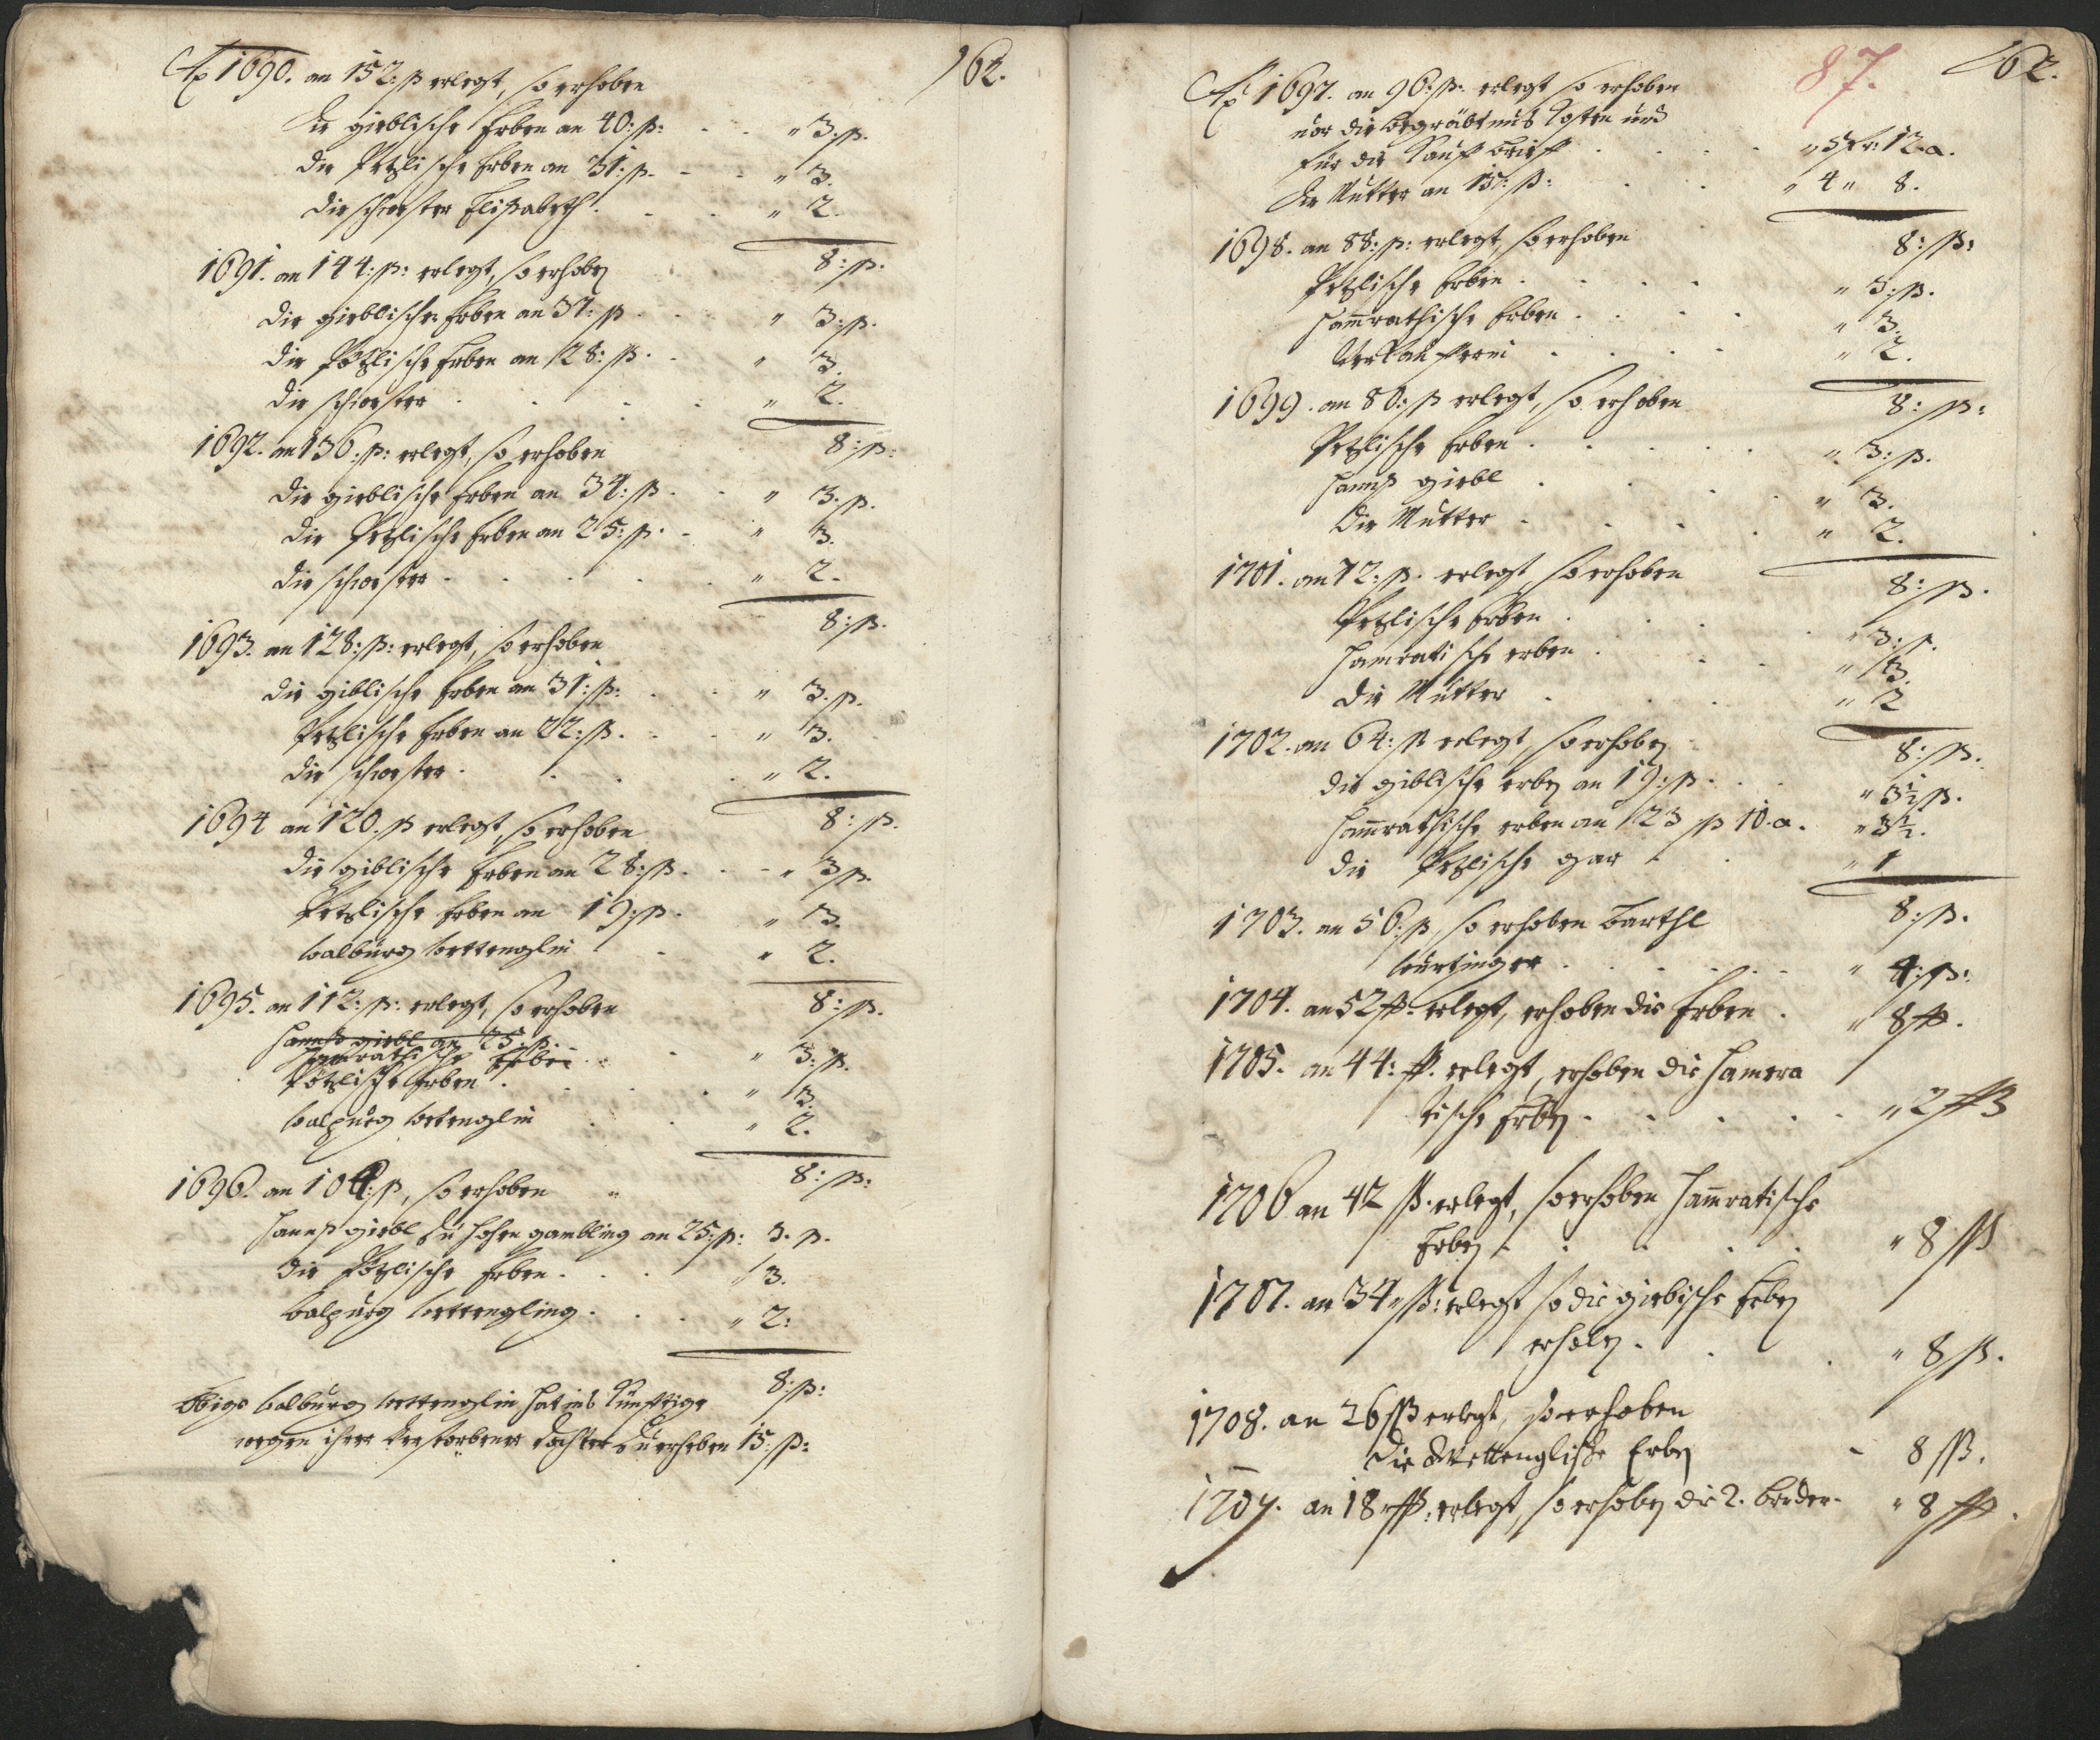 162.
Aō 1690. an 152: ß erlegt, so erhoben
die gieblische Erben an 40: ß: . . " 3. ß.
die Petzlische Erben an 31: ß. - - " 3.
die schwester Elisabeth . . . " 2.
8: ß.
1691. an 144: ß: erlegt, so erhoben
die gieblische Erben an 37: ß . . " 3: ß.
die Pötzlische Erben an 28: ß. . " 3.
die schwester . . . . " 2.
8: ß:
1692. an 136: ß: erlegt, so erhoben
die gieblische Erben an 34: ß. . " 3. ß.
die Petzlische Erben an 25: ß. - " 3.
die schwester . . . . " 2.
8: ß.
1693. an 128: ß: erlegt, so erhoben
die giblische Erben an 31: ß: . " 3. ß.
Petzlische Erben an 22: ß. . " 3.
die schwester . . . " 2.
8: ß.
1694 an 120. ß erlegt, so erhoben
die giblische Erben an 28: ß. . - " 3 ß.
Petzlische Erben an 19: ß. " 3.
walburg wettenglin . " 2.
8: ß.
1695. an 112: ß: erlegt, so erhoben
Hannß giebl an 25: ß.
Hamrathische Erben . . " 3: ß.
Pötzlische Erben . . . " 3.
walpurg wetenglin . . " 2.
8: ß:
1696. an 104: ß, so erhoben "
Hannß giebl zu hohen gambling an 25: ß: 3. ß.
die Pötzlische Erben . . . " 3.
walpurg wettengling . . . " 2:
8: ß:
Obige walburg wettenglin hat ins Künfftige
wegen ihrer verstorbener dochter zu erheben 15: ß:
87.
162.
Aō 1697. an 96: ß: erlegt so erhoben
vor die begräbtnus Costen und
für die Kauff brieff . . . . " 3 fr: 12 a.
die Mutter an 15: ß: . . " 4 " 8.
8: ß:
1698. an 88: ß: erlegt, so erhoben
Petzlische Erben . . . . " 3: ß.
Hamrathische Erben . . . " 3.
Verkaufferin . . . . " 2.
8: ß:
1699. an 80: ß erlegt, so erhoben
Petzlische Erben . . . . " 3: ß.
Hannß giebl . . . . " 3.
die Mutter . . . . " 2.
8: ß.
1701. an 72: ß. erlegt, so erhoben
Petzlische Erben . . . " 3: ß.
Hamratische erben . . . " 3.
die Mutter . . . " 2
8: ß.
1702. an 64: ß erlegt, so erhoben
die giblische erben an 19: ß. . " 3½ ß.
Hamrathische erben an 23 ß 10. a. " 3½.
die Petzlische gar . . " 1
8: ß.
1703. an 56: ß, so erhoben Barthl
wurtzinger . . . . . " 4: ß:
1704. an 52 ß. erlegt, erhoben die Erben . " 8 ß.
1705. an 44: ß. erlegt, erhoben die Hamera
tische Erben . . . . . " 2 ß
1706 an 42 ß. erlegt, so erhoben Hamratische
Erben . . . . . " 8 ß
1707. an 34 " ß: erlegt so die giebische Erben
erhoben . . . " 8 ß.
1708. an 26 ß erlegt, so erhoben
die Wettenglische Erben - 8 ß.
1709. an 18 " ß: erlegt, so erhoben die 2. brüder. " 8 ß.